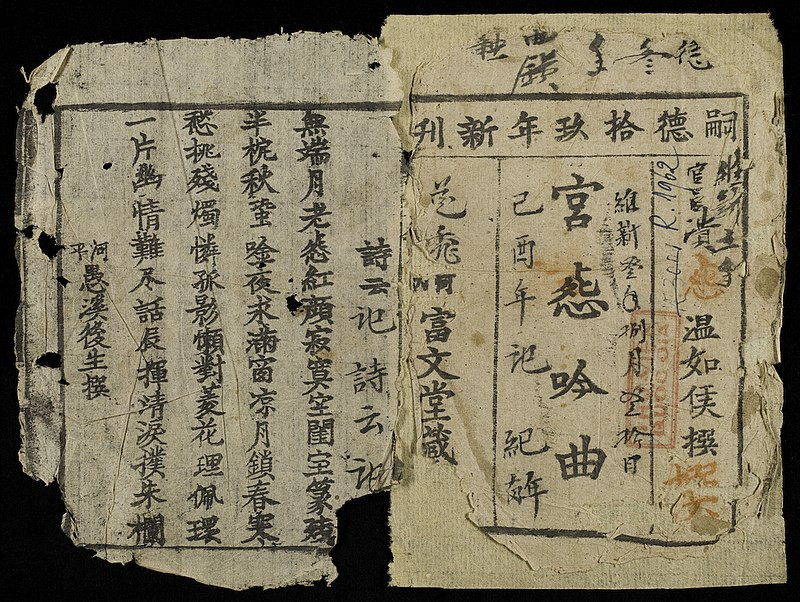 德冬
嗣德拾玖年新刊
維新
溫如侯撰
R. 1962
維新 年捌月 拾日
宮怨吟曲
己酉年記 紀
河內富文堂藏
詩云記詩云記
無端月老怨紅顏寂寞空閨宝篆残
半枕秋蛩唫夜永滿窗凉月鎖春寒
愁挑殘燭憐孤影懶對菱花理佩環
一片幽情難尽話辰揮清淚撲朱欄
河平愚溪後生撰